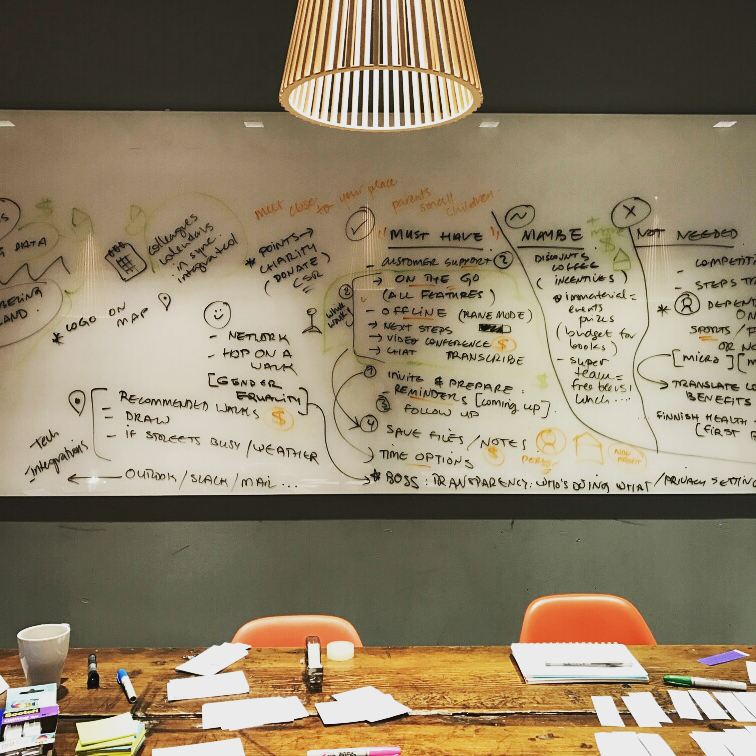 DATA
LAND.
colleagues
calendars
in sync
integrated!
* LOGO ON
MAP
meet close to your place
parents
small
children
* POINTS →
CHARITY
(DONATE)
CSR
- NETWORK
- HOP ON A
WALK
[GENDER
EQUALITY]
- RECOMMENDED WALKS $
- DRAW
- IF STREETS BUSY/WEATHER
Tech
integrations
← OUTLOOK/SLACK/MAIL...
"MUST HAVE"
- CUSTOMER SUPPORT
→ ON THE GO
(ALL FEATURES)
- OFFLINE (PLANE MODE)
→ NEXT STEPS
→ VIDEO CONFERENCE $
→ CHAT TRANSCRIBE
INVITE & PREPARE
- REMINDERS [coming up]
FOLLOW UP
④ SAVE FILES/NOTES
→ TIME OPTIONS $
NON
PROFIT
* BOSS: TRANSPARENCY: WHO'S DOING WHAT/PRIVACY SETTING
~
MAYBE
DISCOUNTS
COFFEE
(INCENTIVES)
immaterial =
events
prizes
(budget for
books)
- super
team =
free beers!
lunch....
X
NOT NEEDED
- COMPETITI
- STEPS
DEPEN
ON
SPORTS /
OR NO
[MICRO] [M
→ TRANSLATE
BENEFITS
FINNISH HEALTH
[FIRST
Scotch